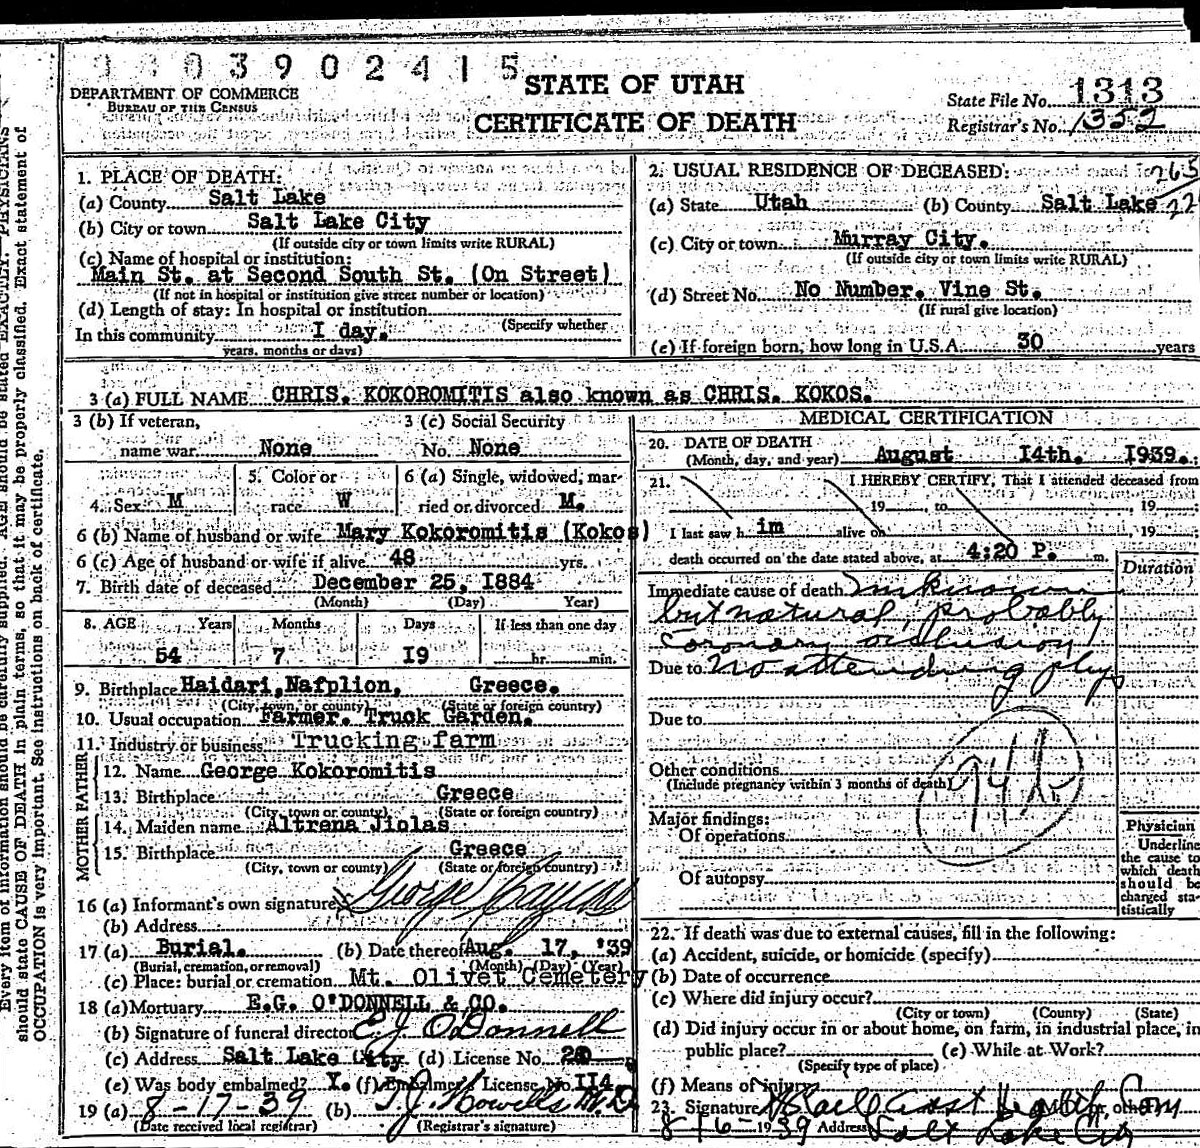 3 9 0 2 4 1 5
DEPARTMENT OF COMMERCE
BUREAU OF THE CENSUS
STATE OF UTAH
CERTIFICATE OF DEATH
State File No. 1313
Registrar's No. 1332
Every item of information should be carefully supplied. AGE should be stated EXACTLY. PHYSICIANS
should state CAUSE OF DEATH in plain terms, so that it may be properly classified. Exact statement of
OCCUPATION is very important. See instructions on back of certificate.
1. PLACE OF DEATH:
(a) County Salt Lake
(b) City or town Salt Lake City
(If outside city or town limits write RURAL)
(c) Name of hospital or institution:
Main St. at Second South St. (On Street)
(If not in hospital or institution give street number or location)
(d) Length of stay: In hospital or institution
(Specify whether
In this community I day.
years, months or days)
2. USUAL RESIDENCE OF DECEASED:
(a) State Utah (b) County Salt Lake
(c) City or town Murray City.
(If outside city or town limits write RURAL)
(d) Street No. No Number. Vine St.
(If rural give location)
(e) If foreign born, how long in U.S.A. 30 years
3 (a) FULL NAME CHRIS. KOKOROMITIS also known as CHRIS. KOKOS.
3 (b) If veteran,
name war None
3 (c) Social Security
No. None
4. Sex M
5. Color or
race W
6 (a) Single, widowed, mar-
ried or divorced M.
6 (b) Name of husband or wife Mary Kokoromitis (Kokos)
6 (c) Age of husband or wife if alive 48 yrs.
7. Birth date of deceased December 25, I884
(Month) (Day) Year)
8. AGE Years Months Days If less than one day
54 7 I9 hr. min.
9. Birthplace Haidari, Nafplion, Greece.
(City, town, or county) (State or foreign country)
10. Usual occupation Farmer. Truck Garden.
11. Industry or business Trucking farm
FATHER
12. Name George Kokoromitis
13. Birthplace Greece
(City, town or county) (State or foreign country)
MOTHER
14. Maiden name Altrena Jiolas
15. Birthplace Greece
(City, town or county) (State or foreign country)
16 (a) Informant's own signature George
(b) Address
17 (a) Burial. (b) Date thereof Aug. 17, '39
(Burial, cremation, or removal) (Month) (Day) (Year)
(c) Place: burial or cremation Mt. Olivet Cemetery
18 (a) Mortuary E.G. O'DONNELL & CO.
(b) Signature of funeral director E J O'Donnell
(c) Address Salt Lake City. (d) License No.
(e) Was body embalmed? (f) Embalmer's License No. II4
19 (a) 8-17-39 (b) T.J. Howells M.D.
(Date received local registrar) (Registrar's signature)
MEDICAL CERTIFICATION
20. DATE OF DEATH
(Month, day, and year) August I4th. I939.
21. I HEREBY CERTIFY, That I attended deceased from
19 , to , 19
I last saw h im alive on , 19
death occurred on the date stated above, at 4:20 P. m.
Duration
Immediate cause of death Unknown
but natural, probably
coronary occlusion
Due to No attending phys
Due to
Other conditions
(Include pregnancy within 3 months of death)
94b
Major findings:
Of operations
Of autopsy
Physician
Underline
the cause to
which death
should be
charged sta-
tistically
22. If death was due to external causes, fill in the following:
(a) Accident, suicide, or homicide (specify)
(b) Date of occurrence
(c) Where did injury occur?
(City or town) (County) (State)
(d) Did injury occur in or about home, on farm, in industrial place, in
public place? (e) While at Work?
(Specify type of place)
(f) Means of injury
23. Signature
8/16 1939 Address Salt Lake City